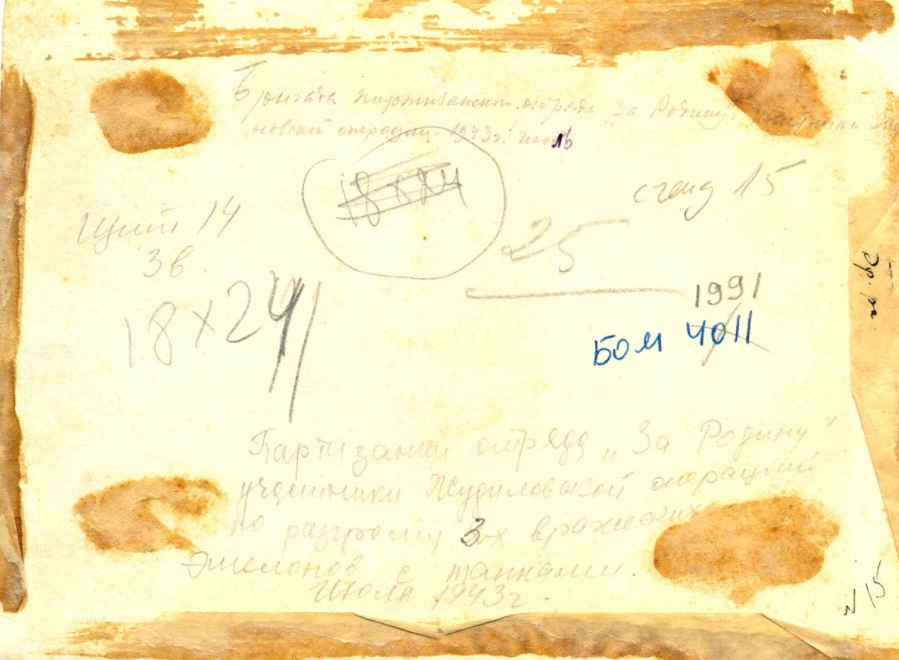 Бригада партизанск. отряда За Родину. участники
новской операции. 1943г. июль
18х24
стенд 15
Щит 14
3в
25
18х24
1991
БОМ 4011
Партизанки отряда „За Родину"
участники Жудиловской операции
по разгрому 3-х вражеских
эшелонов с танками.
Июль 1943г.
N 15